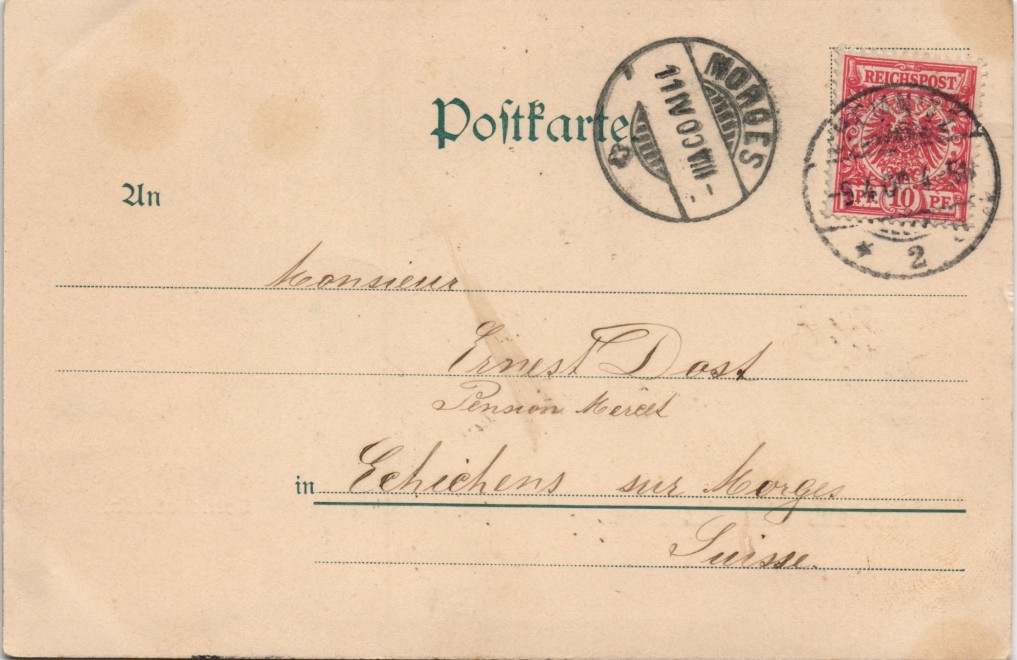 Postkarte
MORGES
11 IV 00
REICHSPOST
10 PF
2
An
Monsieur
Ernest Dost
Pension Mercet
in Echichens sur Morges
Suisse.